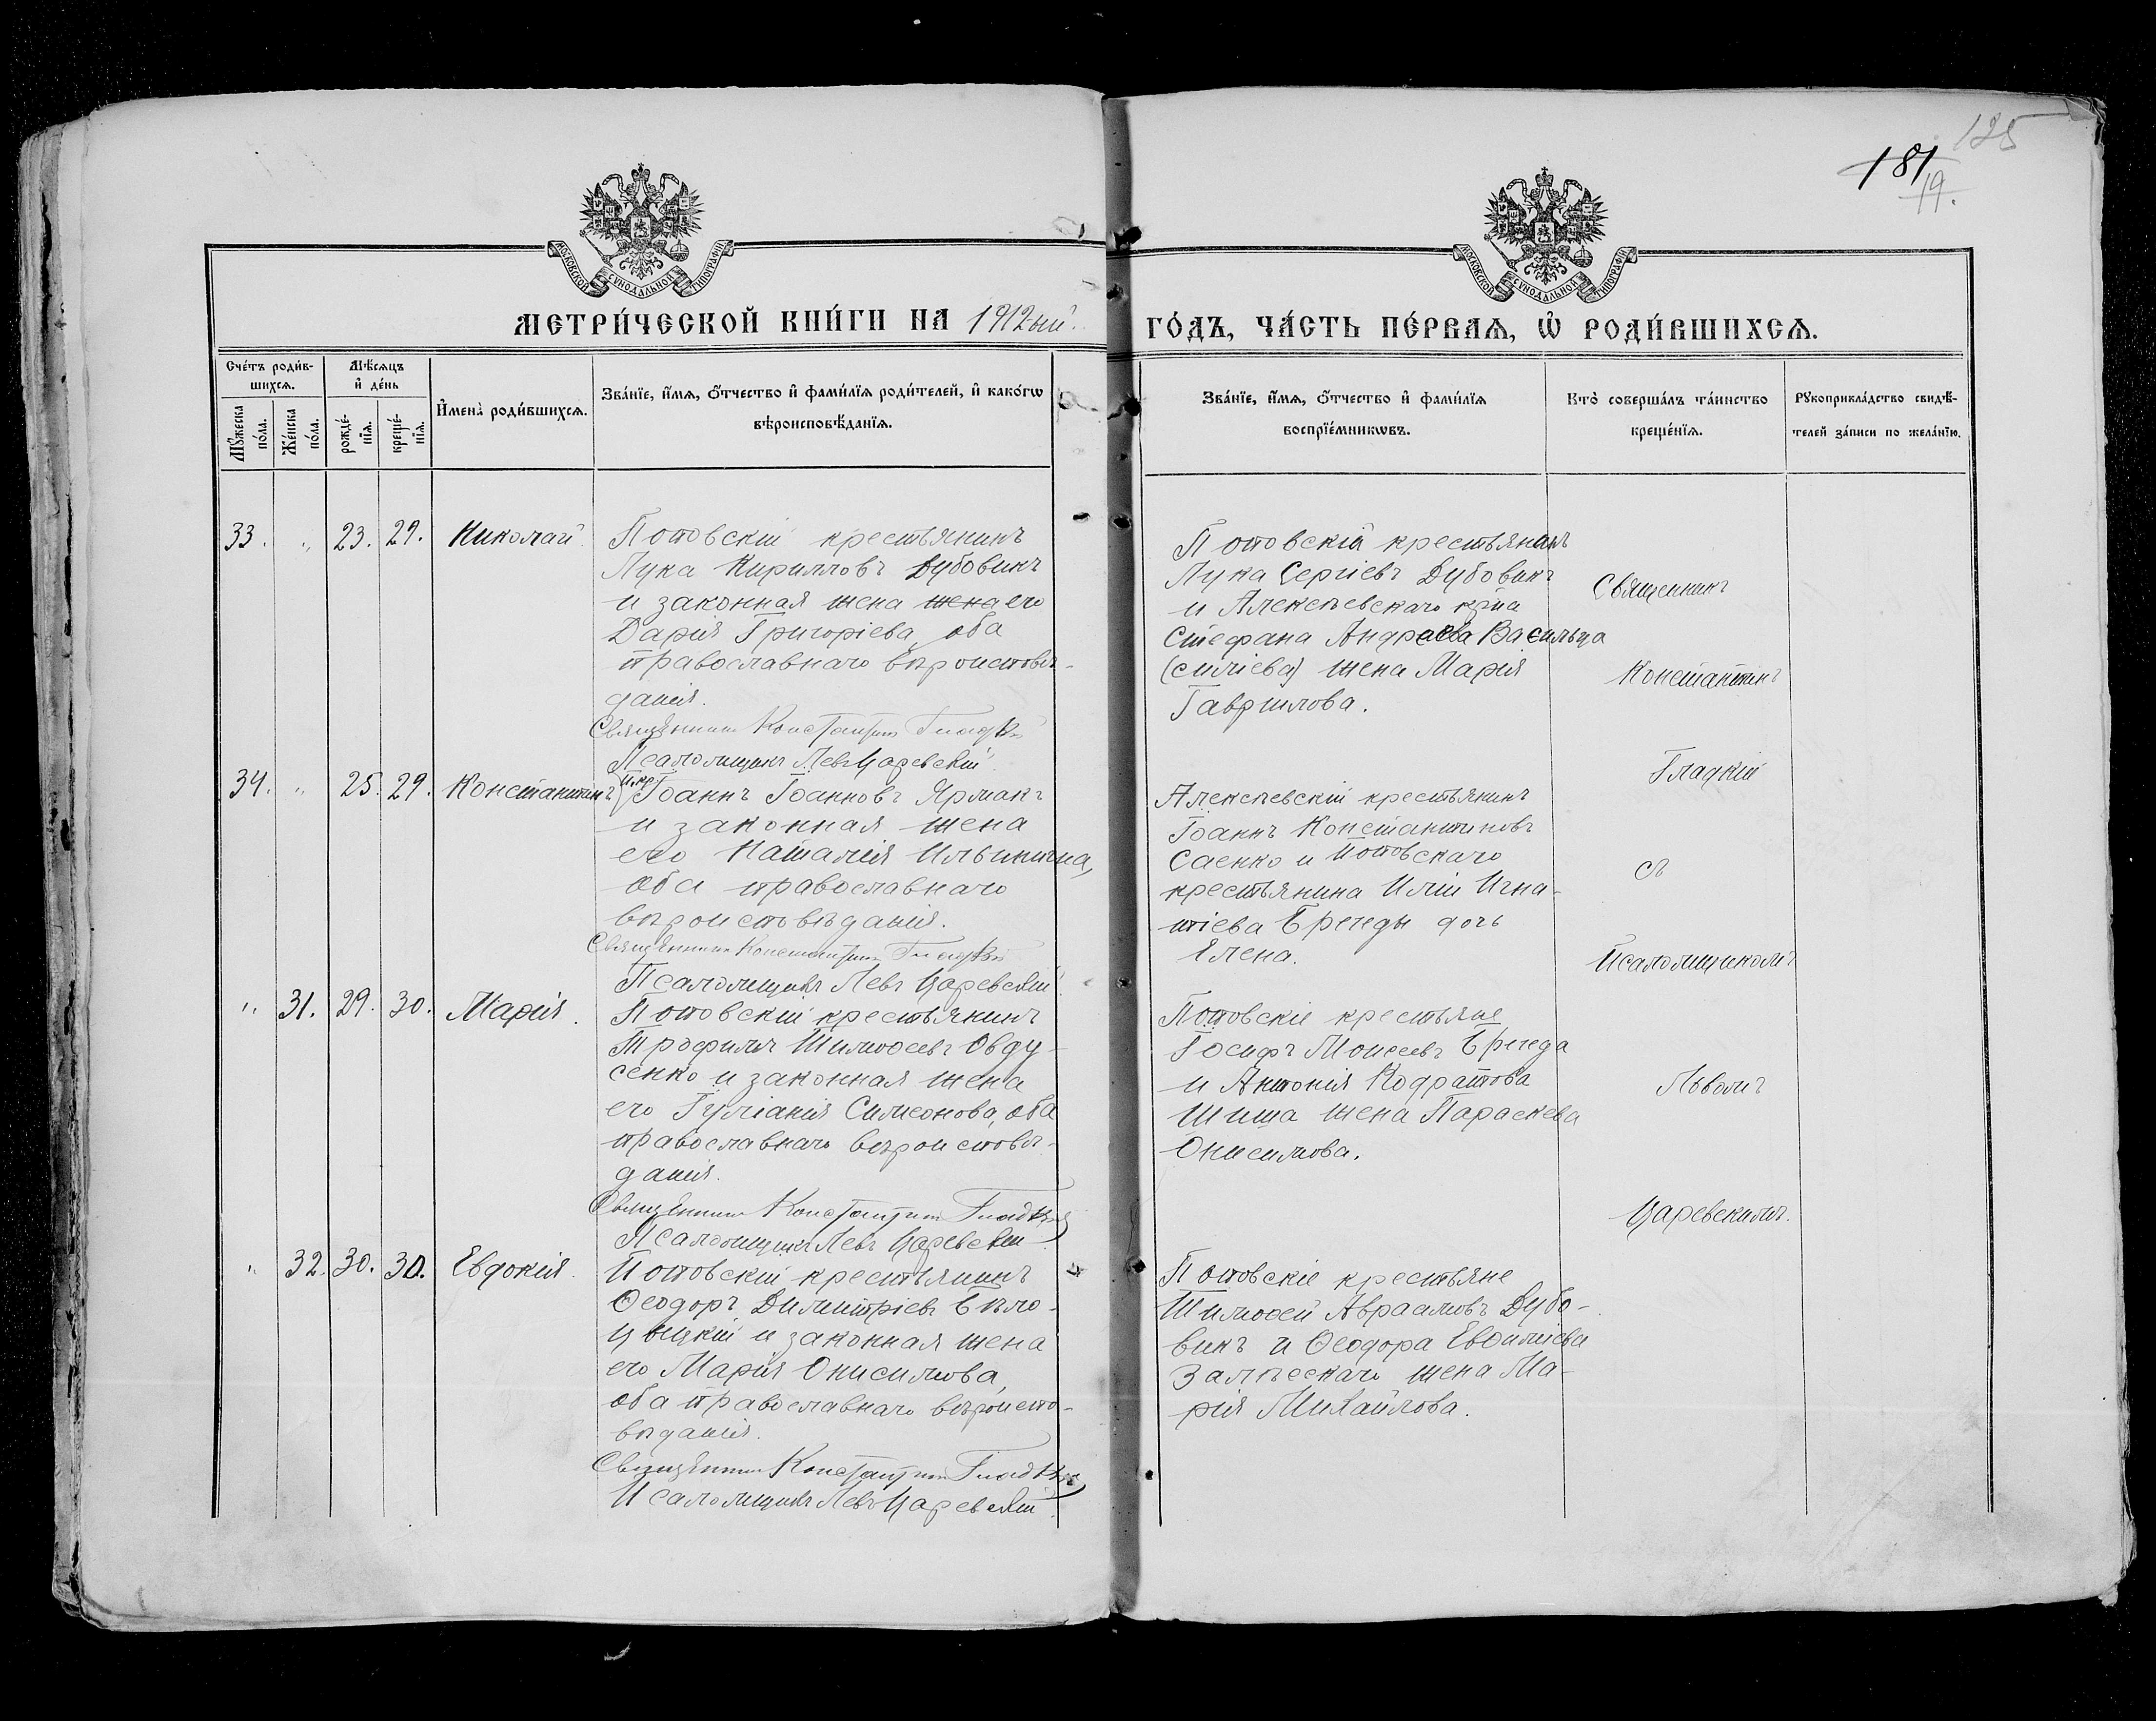 125
181
19.
МОСКОВСКОЙ СѴНОДАЛЬНОЙ ТИПОГРАФІИ
МОСКОВСКОЙ СѴНОДАЛЬНОЙ ТИПОГРАФІИ
МЕТРИ́ЧЕСКОЙ КНИ́ГИ НА 1912-ый.
ГО́ДЪ, ЧА́СТЬ ПЕ́РВАѦ, Ѡ҆ РОДИ́ВШИХСѦ.
Сче́тъ роди́в-
шихсѧ.
Мѣ́сѧцъ
и҆ де́нь
Мꙋ́жеска
по́ла.
Же́нска
по́ла.
рожде́-
нїѧ.
креще́-
нїѧ.
И҆мена̀ роди́вшихсѧ.
Зва́нїе, и҆́мѧ, ѻ҆́тчество и҆ фами́лїѧ роди́телей, и҆ како́гѡ
вѣроисповѣ́данїѧ.
Зва́нїе, и҆́мѧ, ѻ҆́тчество и҆ фами́лїѧ
воспрїе́мникѡвъ.
Кто̀ соверша́лъ та́инство
креще́нїѧ.
Рꙋкоприкла́дство свидѣ́-
телей за́писи по жела́нїю.
33. " 23. 29. Николай.
Поповскій крестьянинъ
Лука Кирилловъ Дубовикъ
и законная жена жена его
Дарія Григоріева, оба
православнаго вѣроисповѣ-
данія.
Священникъ Константинъ Гладкій
Псаломщикъ Левъ Царевскій
Поповскій крестьянинъ
Лука Сергіевъ Дубовикъ
и Алексѣевскаго кр-на
Стефана Андреева Васильца
(силіева) жена Марія
Гаврилова.
34. " 25. 29. Константинъ
П. кр.
Іоаннъ Іоанновъ Ярмакъ
и законная жена
его Наталія Ильинична,
оба православнаго
вѣроисповѣданія.
Священникъ Константинъ Гладкій
Псаломщикъ Левъ Царевскій
Алексѣевскій крестьянинъ
Іоаннъ Константиновъ
Саенко и Поповскаго
крестьянина Иліи Игна-
тіева Брегеды дочь
Елена.
" 31. 29. 30. Марія.
Поповскій крестьянинъ
Трофимъ Тимоѳеевъ Овду-
сенко и законная жена
его Іуліанія Симеонова, оба
православнаго вѣроисповѣ-
данія.
Священникъ Константинъ Гладкій
Псаломщикъ Левъ Царевскій
Поповскіе крестьяне
Іосифъ Моисеевъ Брегеда
и Антонія Кодратова
Шиша жена Параскева
Онисимова.
" 32. 30. 30. Евдокія.
Поповскій крестьянинъ
Ѳеодоръ Димитріевъ Бѣло-
цыцкій и законная жена
его Марія Онисимова,
оба православнаго вѣроиспо-
вѣданія.
Священникъ Константинъ Гладкій
Псаломщикъ Левъ Царевскій
Поповскіе крестьяне
Тимоѳей Авраамовъ Дубо-
викъ и Ѳеодора Евѳиміева
Залѣсскаго жена Ма-
рія Михайлова.
Священникъ
Константинъ
Гладкій
съ
Псаломщикомъ
Львомъ
Царевскимъ.